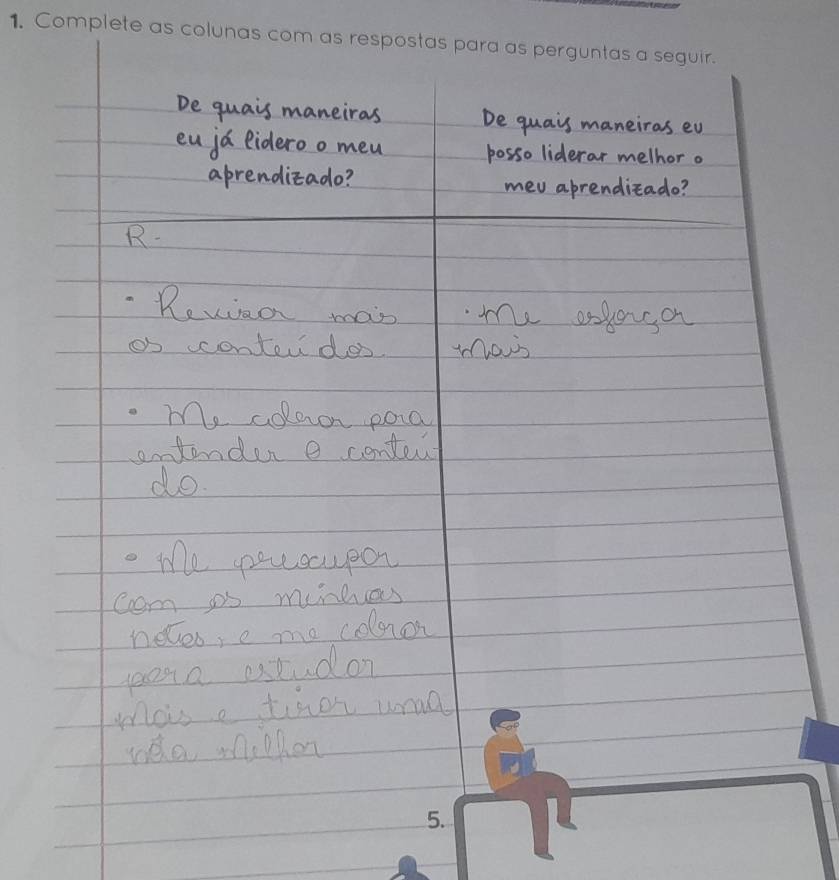 1. Complete as colunas com as respostas para as perguntas a seguir.
De quais maneiras
eu já lidero o meu
aprendizado?
De quais maneiras eu
posso liderar melhor o
meu aprendizado?
R-
• Revisar mais
os conteúdos
• Me cobrar para
entender o conteú
do.
• Me preocupar
com as minhas
notas, e me cobrar
para estudar
mais e tirar uma
nota melhor
• me esforçar
mais
5.